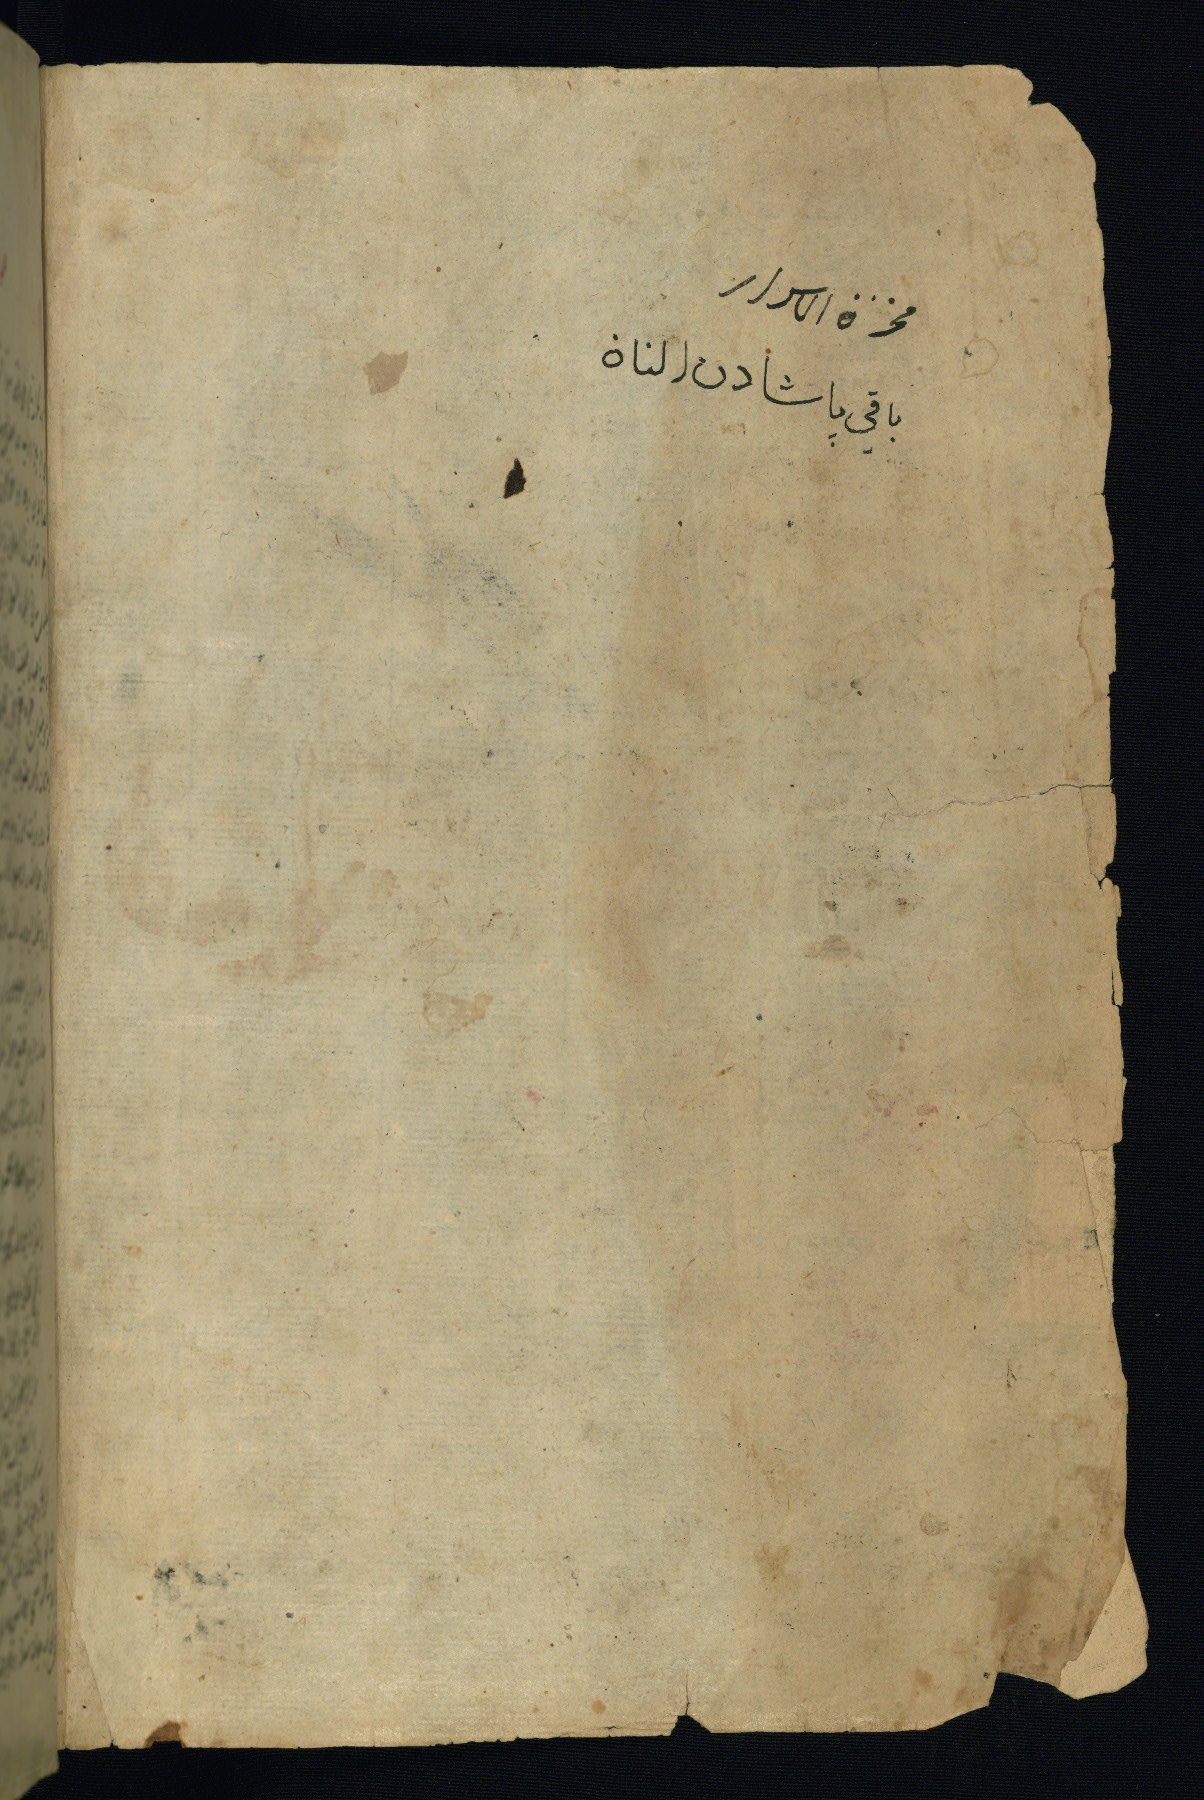 مخزن الاسرار
باقي پاشادن النان